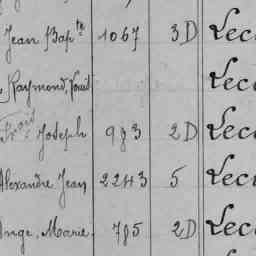 Jean Bapte 1067 3D Lec
Raymond, Louis Lec
François Joseph 983 2D Lec
Alexandre Jean 2243 5 Lec
Ange, Marie 785 2D Lec